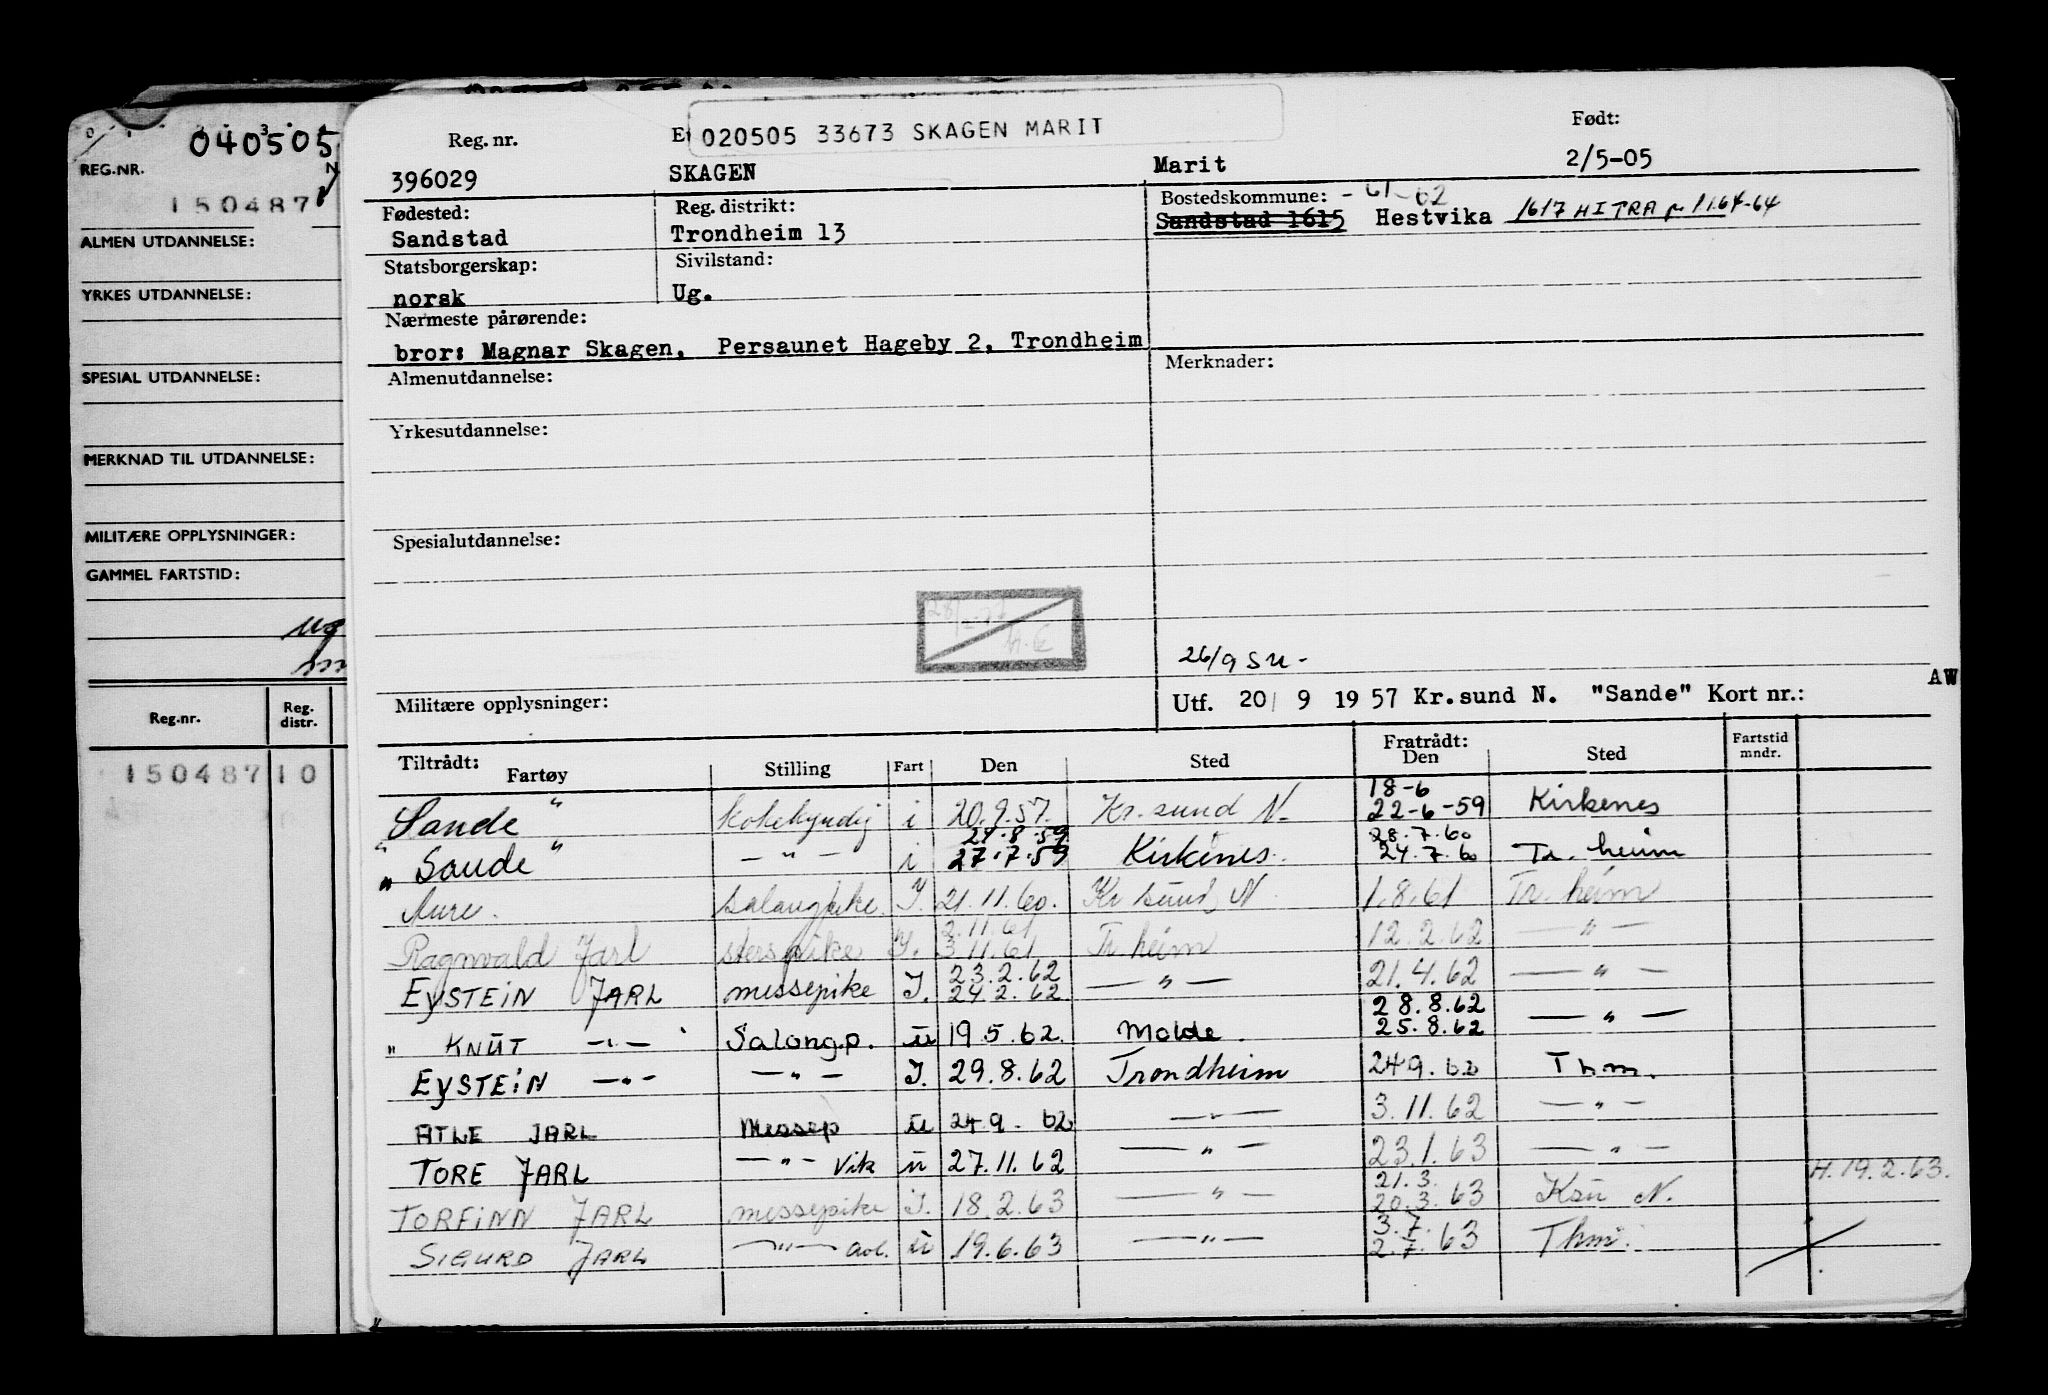 040505
REG.NR.
150487
ALMEN UTDANNELSE:
YRKES UTDANNELSE:
SPESIAL UTDANNELSE:
MERKNAD TIL UTDANNELSE:
MILITÆRE OPPLYSNINGER:
GAMMEL FARTSTID:
Reg.nr. Reg. distr.
150487 10
020505 33673 SKAGEN MARIT
Reg. nr. Født:
396029 SKAGEN Marit 2/5-05
Fødested: Reg. distrikt: Bostedskommune: - 61-62
Sandstad Trondheim 13 Sandstad 1615 Hestvika 1617 HITRA 11.64-64
Statsborgerskap: Sivilstand:
norsk Ug.
Nærmeste pårørende:
bror: Magnar Skagen, Persaunet Hageby 2, Trondheim
Almenutdannelse: Merknader:
Yrkesutdannelse:
Spesialutdannelse:
26/9 su-
AW
Militære opplysninger: Utf. 20/ 9 19 57 Kr.sund N. "Sande" Kort nr.:
Tiltrådt: Fartøy Stilling Fart Den Sted Fratrådt: Den Sted Fartstid mndr.
18-6
Sande " kokekyndig i 20.9.57. Kr. sund N. 22-6-59 Kirkenes
27.8.59 28.7.60
" Sande " — " — i 27.7.59 Kirkenes. 24.7.60 Tr. heim
Aure. salongpike. I. 21.11.60. Kr sund N 1.8.61 Tr. heim
2.11.61
Ragnvald Jarl I. 3.11.61 Tr heim 12.2.62 — " —
23.2.62
EYSTEIN JARL messepike I. 24.2.62 — " — 21.4.62 — " —
28.8.62
" KNUT — " — Salong.p. u 19.5.62. Molde. 25.8.62 — " —
EYSTEIN — " — — " — I. 29.8.62 Trondheim 24.9.62 Thm.
ATLE JARL Messep u 24.9.62 — " — 3.11.62 — " —
TORE JARL — " — Vik u 27.11.62 — " — 23.1.63 — " —
21.3. H.19.2.63.
TORFINN JARL messepike I. 18.2.63 — " — 20.3.63 Ksu N.
3.7.
SIGURD JARL — " — avl. u 19.6.63 — " — 2.7.63 Thm.